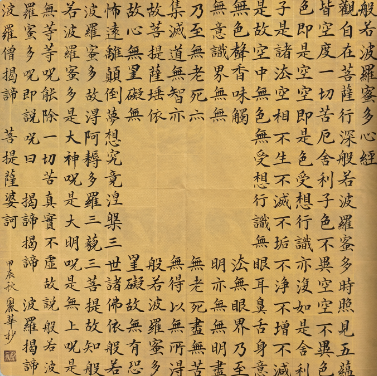 般若波羅蜜多心經
觀自在菩薩行深般若波羅蜜多時照見五蘊
皆空度一切苦厄舍利子色不異空空不異色
色即是空空即是色受想行識亦復如是舍利
子是諸法空相不生不滅不垢不淨不增不減
是故空中無色無受想行識無眼耳鼻舌身意
無色聲香味觸法無眼界乃至
無意識界無無明亦無無明盡
乃至無老死亦無老死盡無苦
集滅道無智亦無得以無所得
故菩提薩埵依般若波羅蜜多
故心無罣礙無罣礙故無有恐
怖遠離顛倒夢想究竟涅槃三世諸佛依般若
波羅蜜多故得阿耨多羅三藐三菩提故知般
若波羅蜜多是大神咒是大明咒是無上咒是
無等等咒能除一切苦真實不虛故說般若波
羅蜜多咒即說咒曰 揭諦揭諦 波羅揭諦
波羅僧揭諦 菩提薩婆訶
甲辰秋